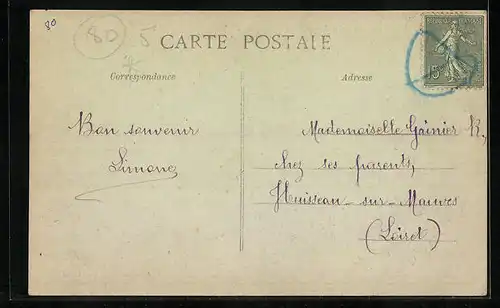 80
80 5
CARTE POSTALE
Correspondance
Adresse
RÉPUBLIQUE FRANÇAISE
15
Bon souvenir
Simone
Mademoiselle Garnier R,
chez ses parents,
Huisseau-sur-Mauves
(Loiret)